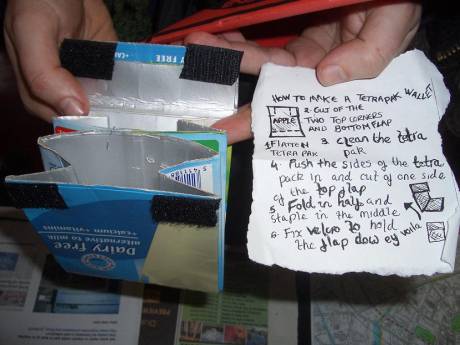 Y FREE
HOW TO MAKE A TETRAPAK WALLET
APPLE
2. CUT OF THE
TWO TOP CORNERS
AND BOTTOM FLAP
1 FLATTEN
TETRA PAK
3. Clean the tetra
pak
4. Push the sides of the tetra
pack in and cut of one side
of the top flap
5. Fold in half and
staple in the middle
6. Fix velcro to hold
the flap down ey voila
Dairy free
alternative to milk
+calcium +vitamins